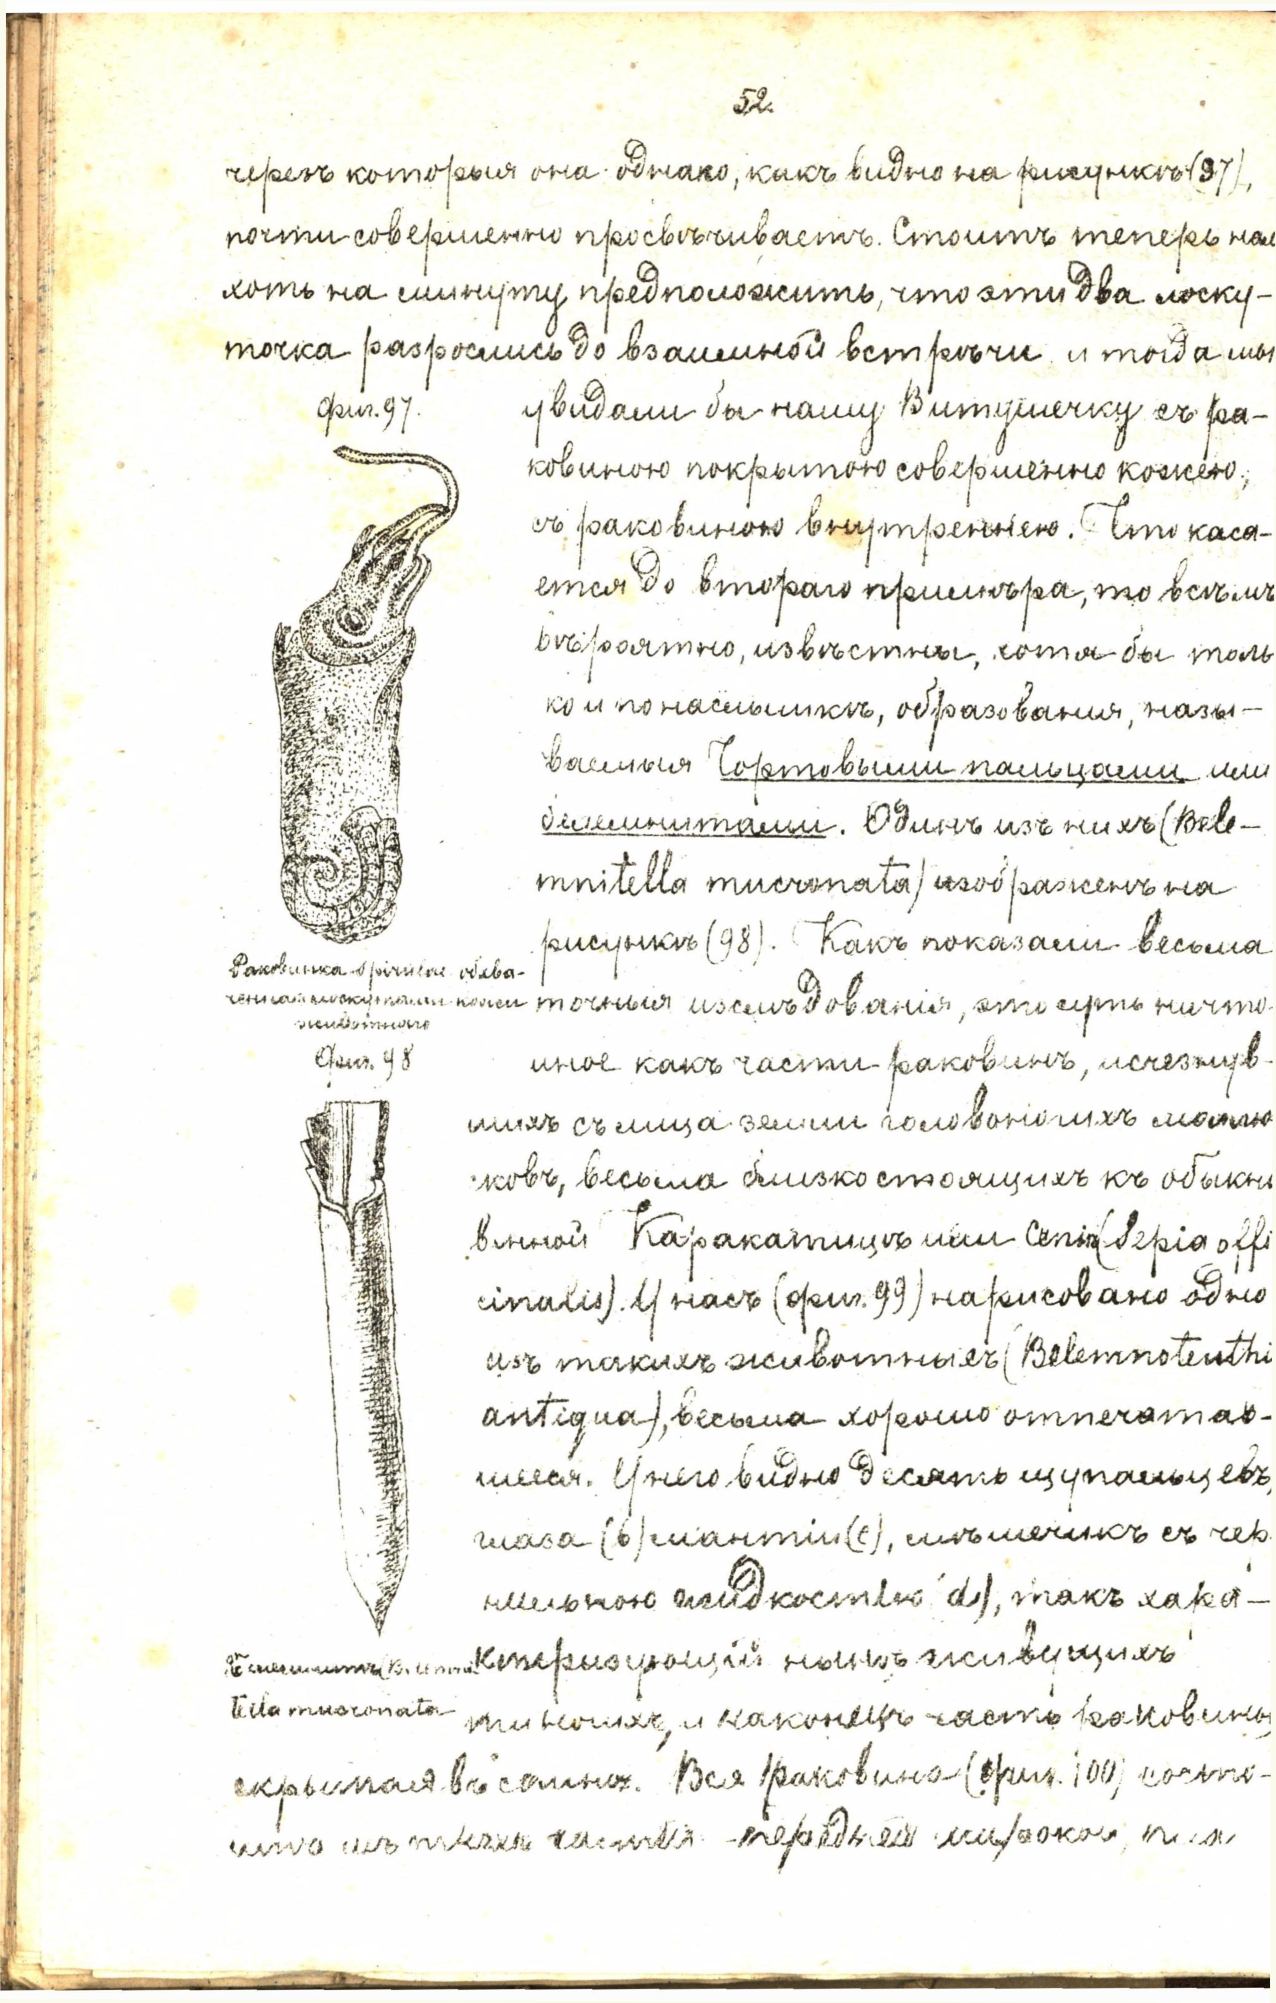 52.
черезъ которыя она однако, какъ видно на рисункѣ (97),
почти совершенно просвѣчиваетъ. Стоитъ теперь нам
хоть на минуту предположить, что эти два лоску-
точка разрослись до взаимной встрѣчи и тогда мы
увидали бы нашу Витушечку съ ра-
ковиною покрытою совершенно кожею,
съ раковиною внутреннею. Что каса-
ется до втораго примѣра, то всѣмъ
вѣроятно, извѣстны, хотя бы толь
ко и по наслышкѣ, образования, назы-
ваемыя Чортовыми пальцами или
белемнитами. Одинъ изъ нихъ (Bele-
mnitella mucronata) изображенъ на
рисункѣ (98). Какъ показали весьма
точныя изслѣдованія, это суть ничто
иное какъ части раковинъ, исчезнув-
шихъ съ лица земли головоногихъ моллю
сковъ, весьма близко стоящихъ къ обыкно
венной Каракатицѣ или Сепіи (Sepia offi
cinalis). У насъ (фиг. 99) нарисовано одно
изъ такихъ животныхъ (Belemnoteuthi
antiqua), весьма хорошо отпечатав-
шееся. У него видно десять щупальцевъ,
глаза (b) мантіи (c), мѣшечикъ съ чер
нильною жидкостію d), такъ хара-
ктеризующій нынѣ живущихъ
и наконецъ часть раковины
скрытая въ спинѣ. Вся раковина (фиг. 100) состо-
изъ частей передней широкой,
Фиг. 97.
Раковинка Spirulae обхва-
ченная лоскутами кожи
животнаго
Фиг. 98
Белемнитъ (Belemni
tella mucronata